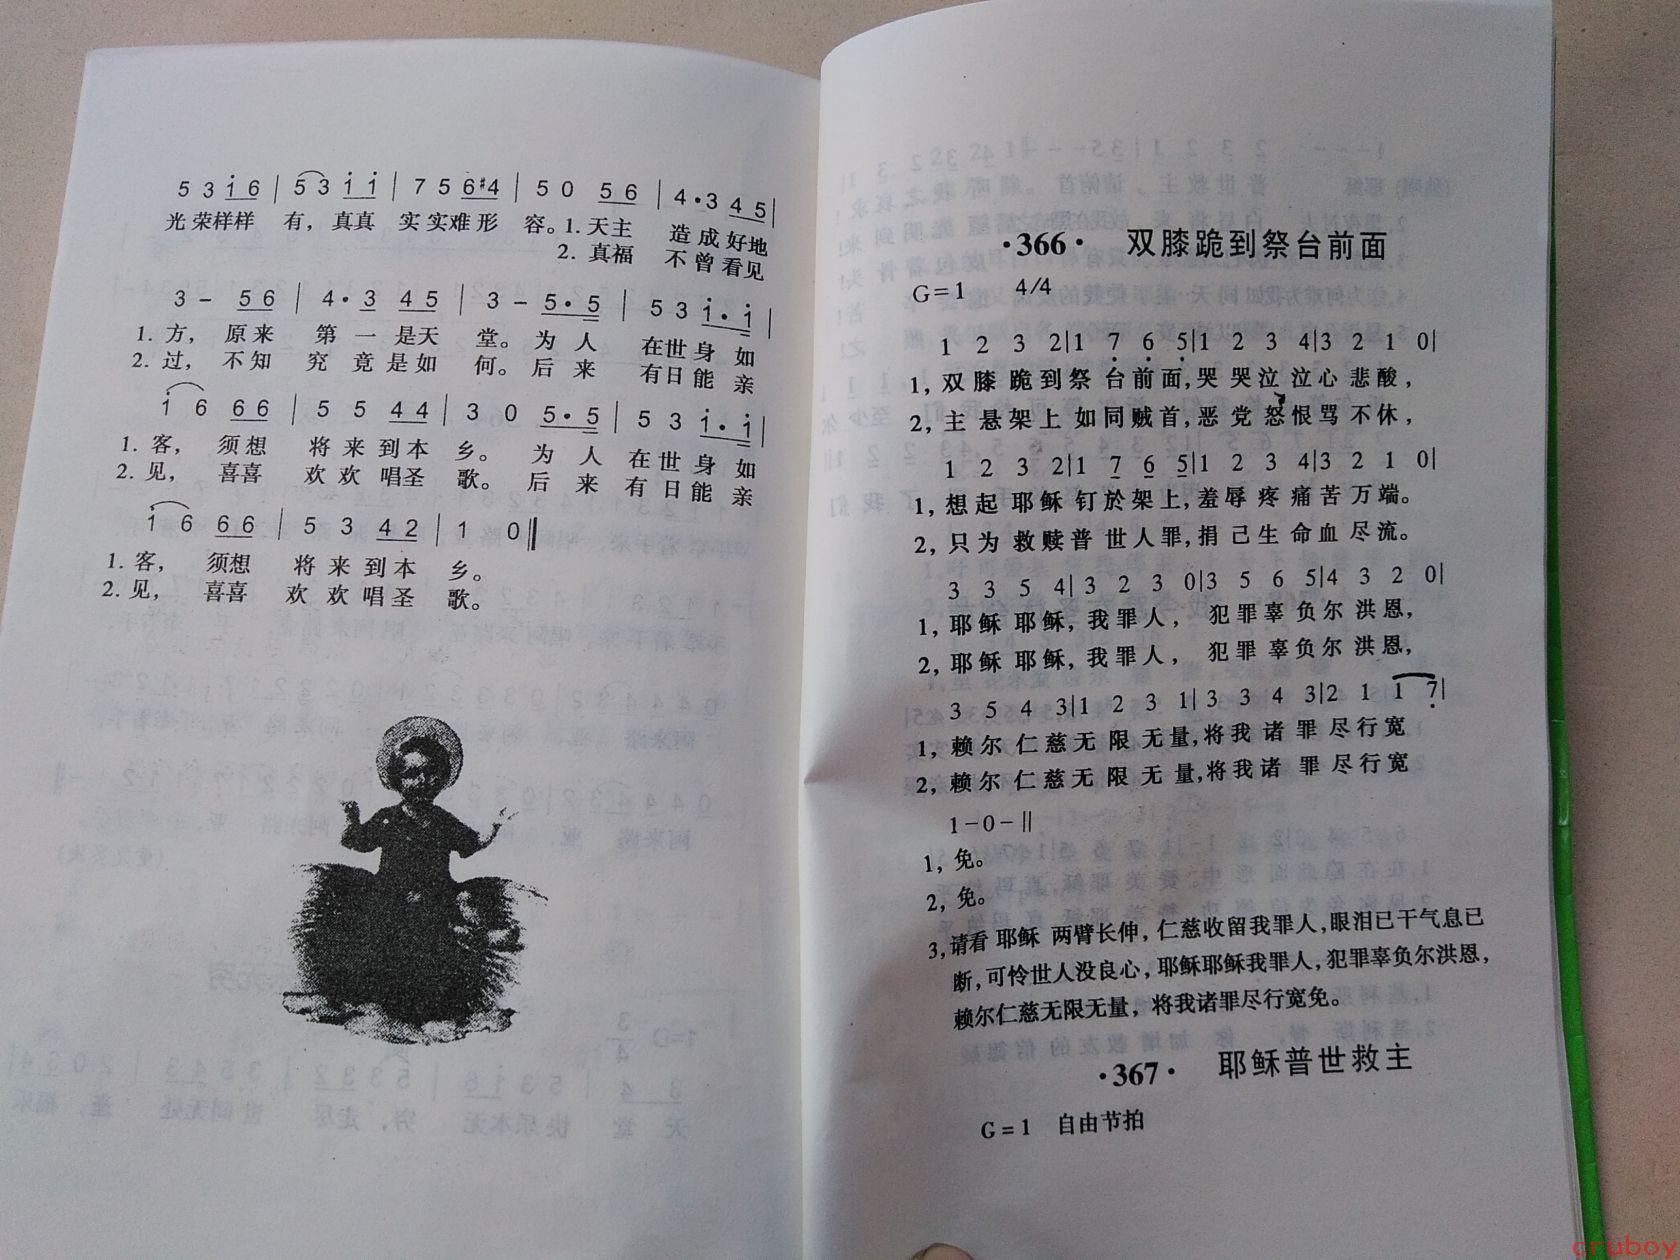 5 3 i 6 | 5 3 i i | 7 5 6 #4 | 5 0 5 6 | 4·3 4 5 |
光荣样样 有，真真 实实难形 容。1. 天主 造成好地
2. 真福 不曾看见
3 - 5 6 | 4·3 4 5 | 3 - 5·5 | 5 3 i·i |
1. 方，原来 第一是天 堂。为人 在世身如
2. 过，不知 究竟是如 何。后来 有日能亲
i 6 6 6 | 5 5 4 4 | 3 0 5·5 | 5 3 i·i |
1. 客，须想 将来到本 乡。为人 在世身如
2. 见，喜喜 欢欢唱圣 歌。后来 有日能亲
i 6 6 6 | 5 3 4 2 | 1 0 ‖
1. 客，须想 将来到本 乡。
2. 见，喜喜 欢欢唱圣 歌。
·366· 双膝跪到祭台前面
G=1 4/4
1 2 3 2|1 7 6 5|1 2 3 4|3 2 1 0|
1, 双膝跪到祭台前面,哭哭泣泣心悲酸，
2, 主悬架上如同贼首,恶党怒恨骂不休，
1 2 3 2|1 7 6 5|1 2 3 4|3 2 1 0|
1, 想起耶稣钉於架上,羞辱疼痛苦万端。
2, 只为救赎普世人罪,捐己生命血尽流。
3 3 5 4|3 2 3 0|3 5 6 5|4 3 2 0|
1, 耶稣耶稣,我罪人，犯罪辜负尔洪恩,
2, 耶稣耶稣,我罪人，犯罪辜负尔洪恩,
3 5 4 3|1 2 3 1|3 3 4 3|2 1 1 7|
1, 赖尔仁慈无限无量,将我诸罪尽行宽
2, 赖尔仁慈无限无量,将我诸罪尽行宽
1-0-‖
1, 免。
2, 免。
3, 请看耶稣两臂长伸, 仁慈收留我罪人, 眼泪已干气息已
断, 可怜世人没良心, 耶稣耶稣我罪人, 犯罪辜负尔洪恩，
赖尔仁慈无限无量，将我诸罪尽行宽免。
·367· 耶稣普世救主
G=1 自由节拍
cruboy